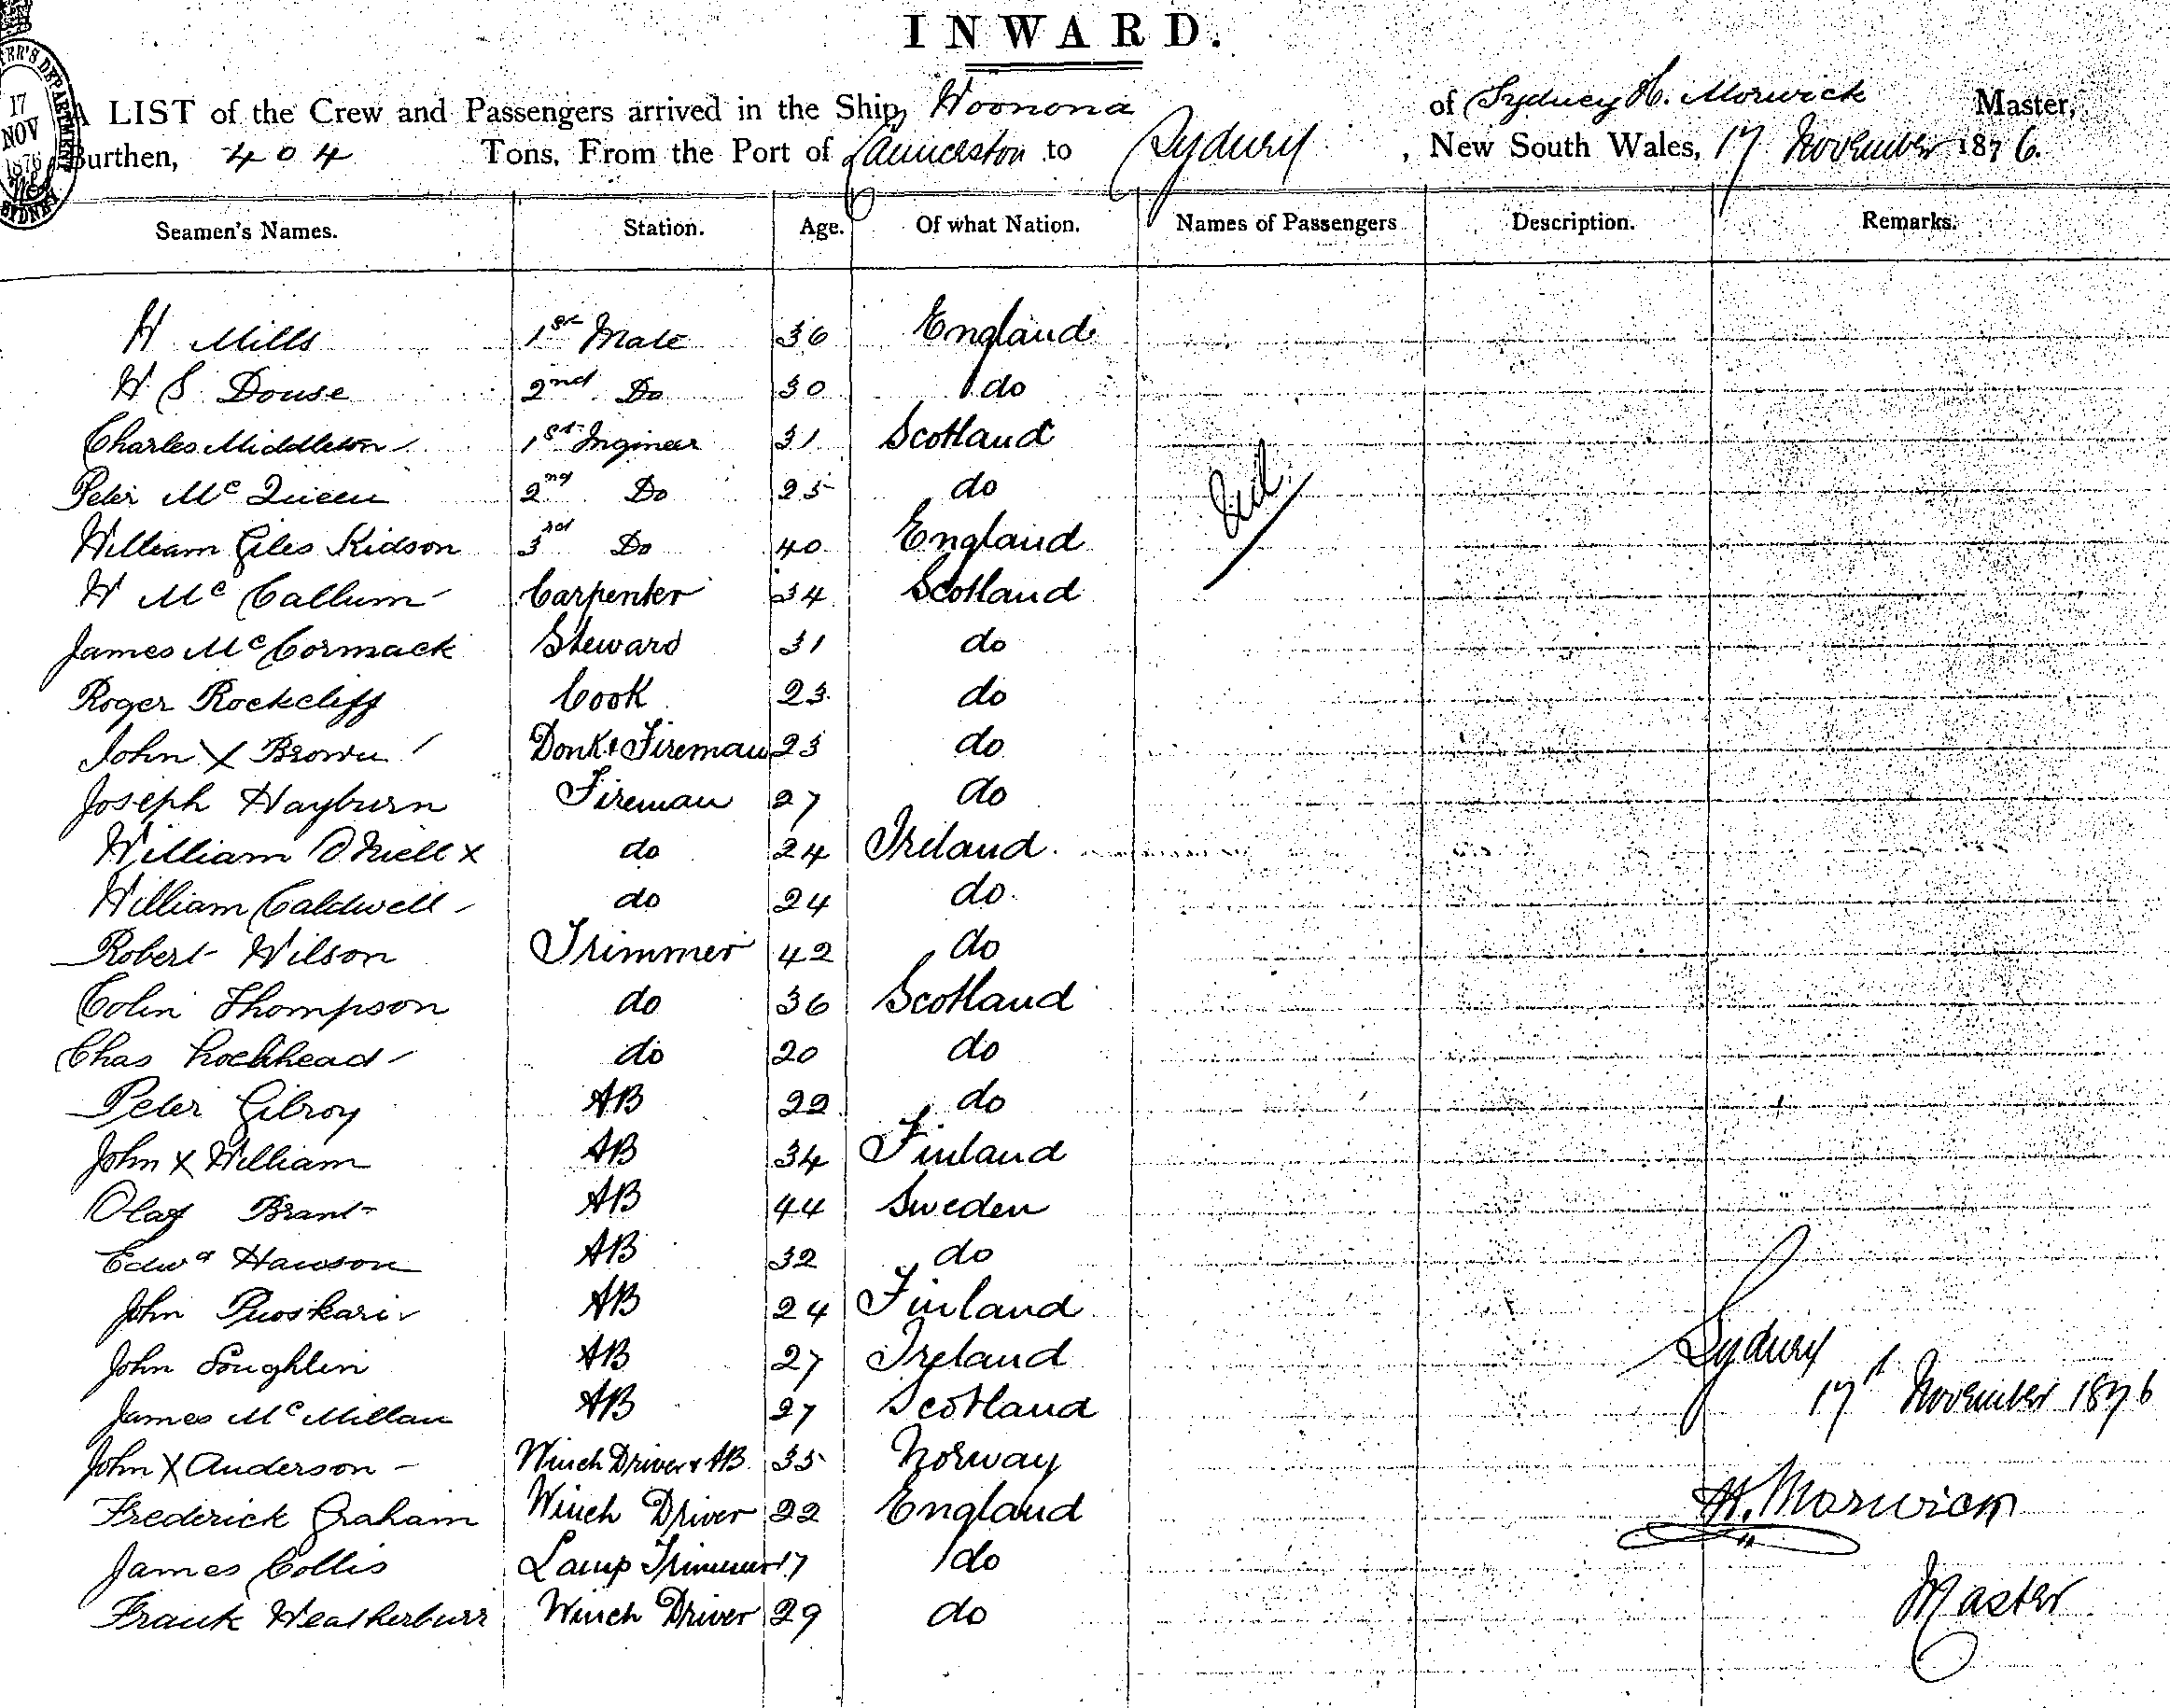 INWARD.
A LIST of the Crew and Passengers arrived in the Ship, Woonona of Sydney H. Morwick Master,
Burthen, 404 Tons, From the Port of Launceston to Sydney, New South Wales, 17 November 1876.
17 NOV 1876 SYDNEY
Seamen's Names. Station. Age. Of what Nation. Names of Passengers Description. Remarks.
H Mills 1st Mate 36 England
H S Douse 2nd Do 30 do
Charles Middleton 1st Ingineer 31 Scotland
Peter McQueen 2nd Do 25 do
Nil
William Giles Kidson 3rd Do 40 England
H McCallum Carpenter 34 Scotland
James McCormack Steward 31 do
Roger Rockcliff Cook 23 do
John X Brown Donk & Fireman 23 do
Joseph Hayburn Fireman 27 do
William ONiell X do 24 Ireland
William Caldwell do 24 do
Robert Wilson Trimmer 42 do
Colin Thompson do 36 Scotland
Chas Lochhead do 20 do
Peter Gilroy AB 22 do
John X William AB 34 Finland
Olaf Brant AB 44 Sweden
Edwd Hawson AB 32 do
John Puoskari AB 24 Finland
John Loughlin AB 27 Ireland
Sydney
James McMillan AB 27 Scotland
17th November 1876
John X Anderson Winch Driver & AB 35 Norway
Frederick Graham Winch Driver 22 England
H. Morwick
James Collis Lamp Trimmer 17 do
Frank Heatherburr Winch Driver 29 do
Master